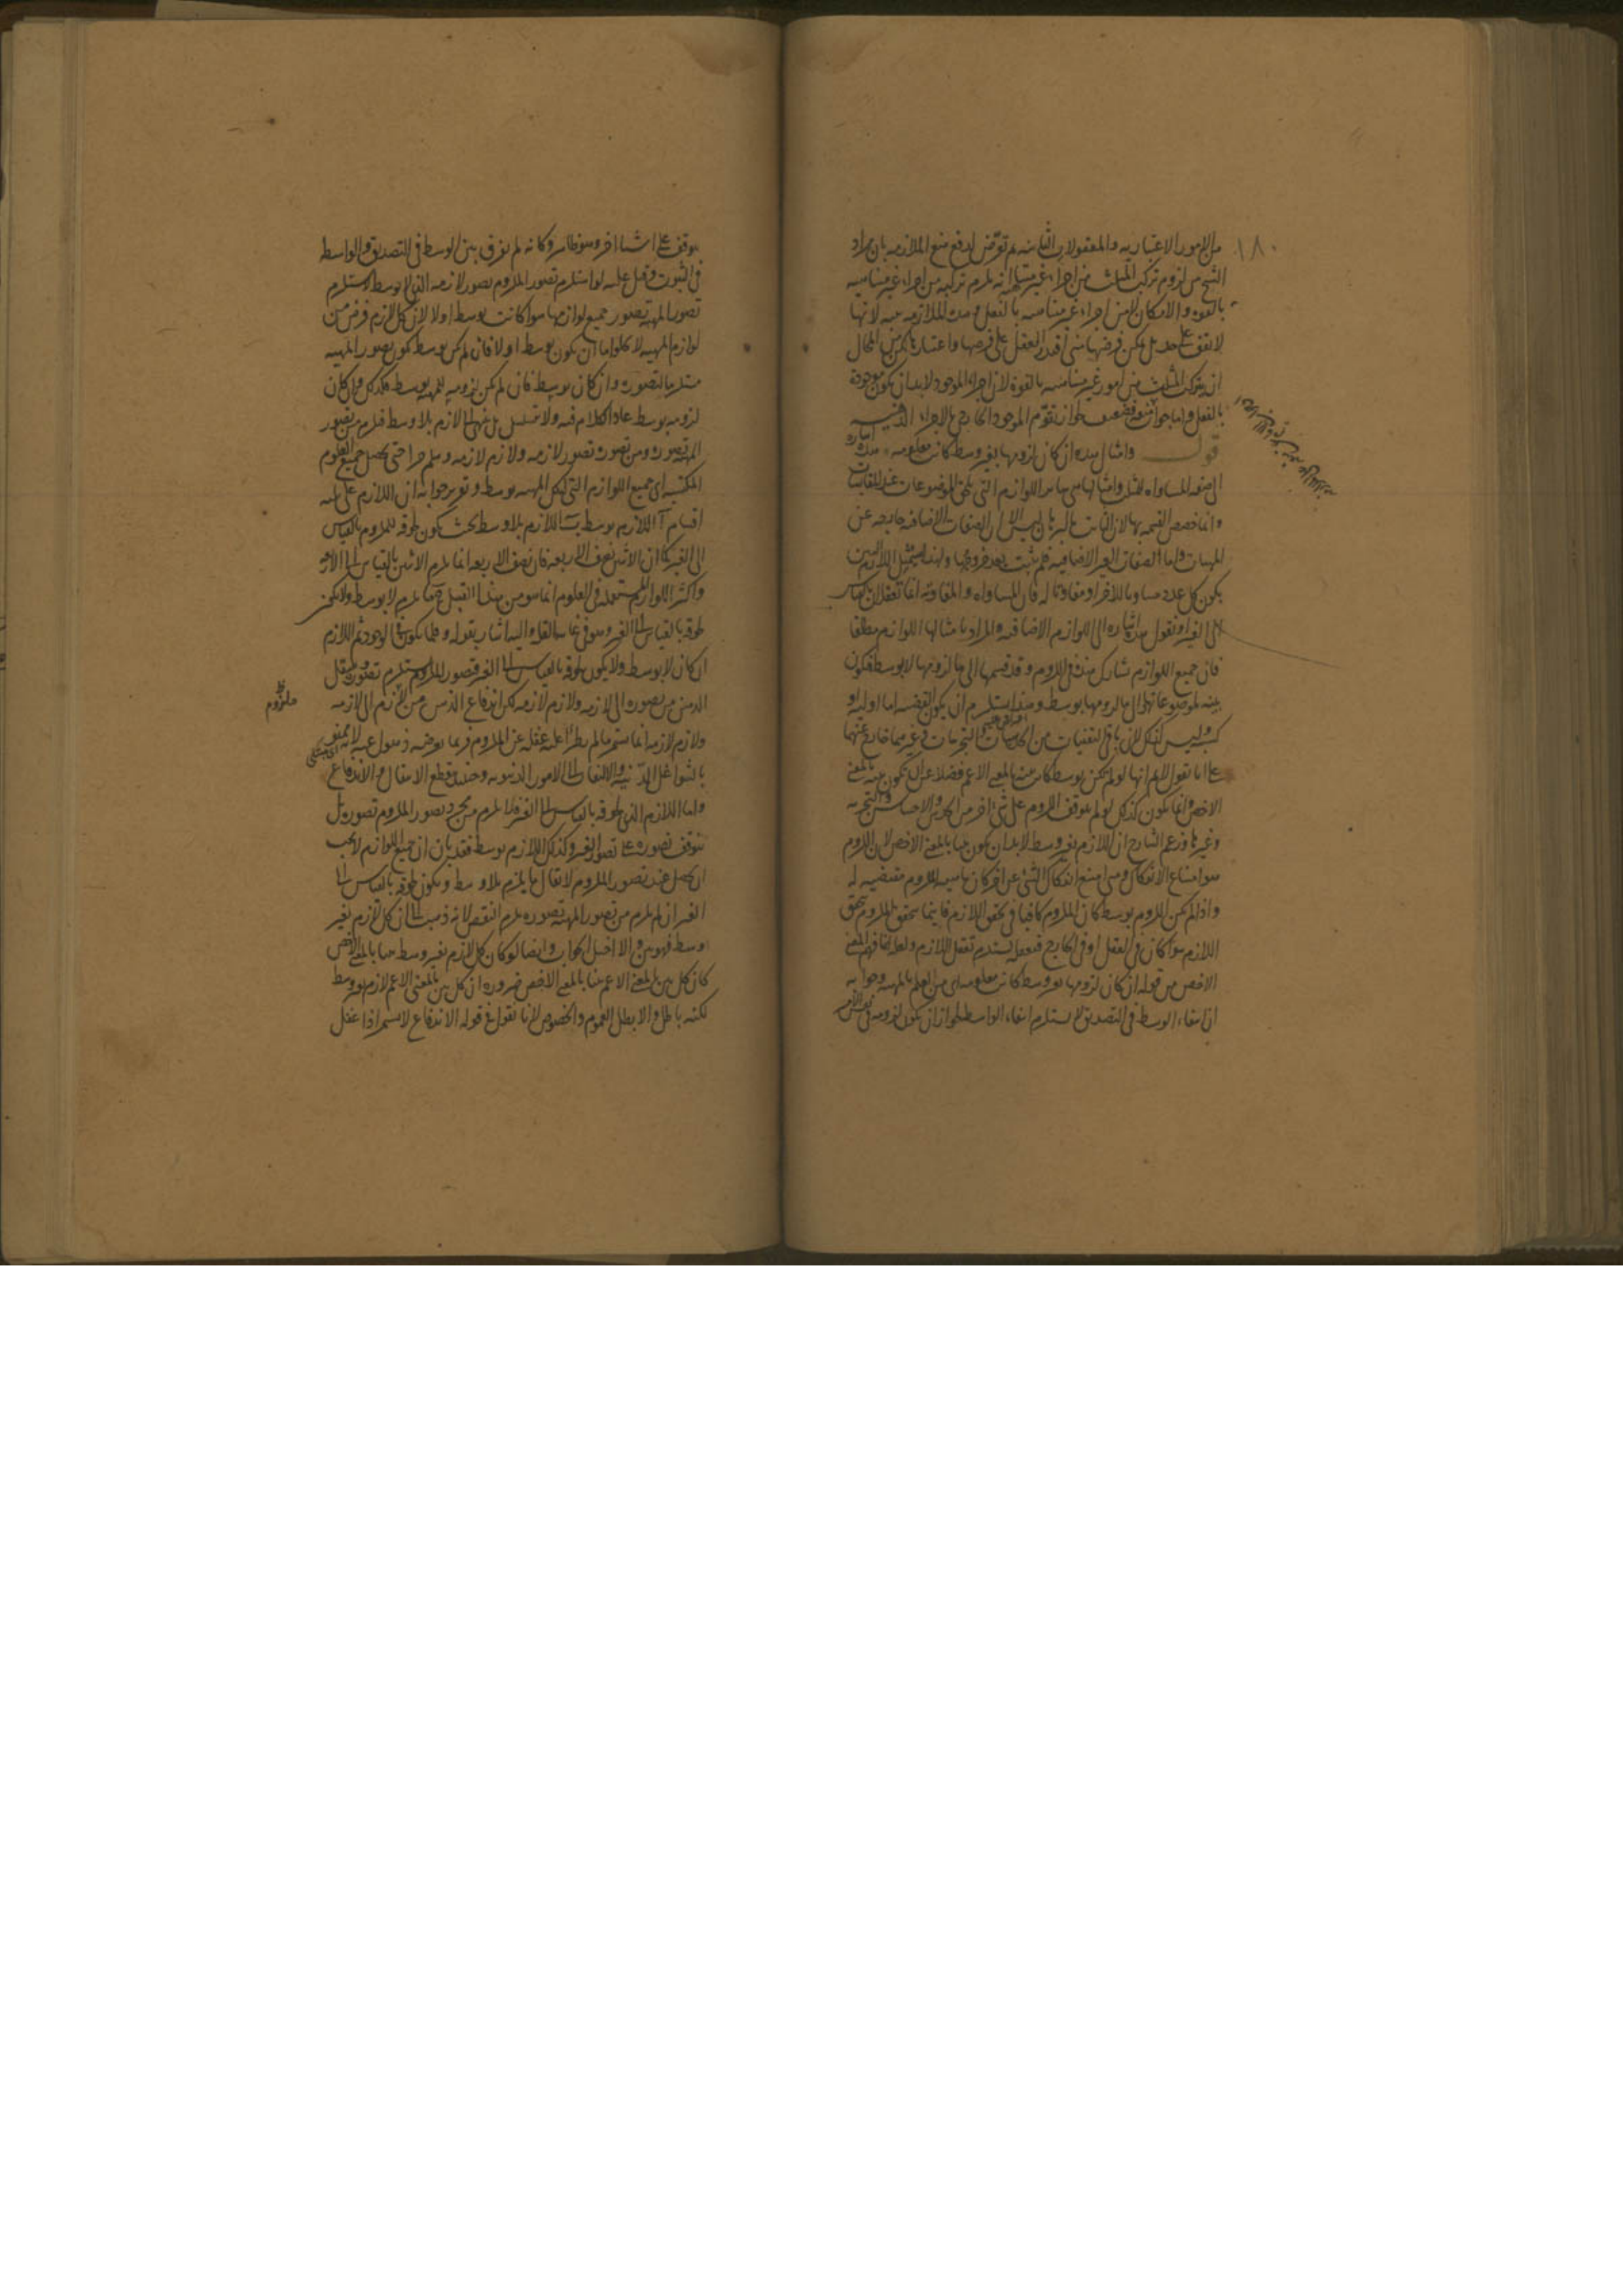 ١٨٠
من الامور الاعتباريه والمعقولات الثانيه ثم تعرض لدفع منع الملازمه بان مراد
الشيخ من لزوم تركب المثلث من اجزاء غير متناهيه انه يلزم تركبه من اجزاء غير متناهيه
بالقوه والامكان لا من اجزاء غير متناهيه بالفعل وهذه الملازمه بينه لانها
لا تقف على حد بل يمكن فرضها متى اقتدر العقل على فرضها واعتبارها لكن من المحال
ان يتركب المثلث من امور غير متناهيه بالقوة لان اجزاء الموجود لا بد ان يكون موجودة
بالفعل واما جوابه فضعيف لجواز تقوم الموجود الخارجي بالاجزاء الذهنيه
قول وامثال هذه ان كان لزومها بغير وسط كانت معلومه هذه اشارة
الى صفه المساواه للمثل وامثالها هي سائر اللوازم التي تلحق الموضوعات عند المقايسات
وانما خصص القسمه بها لان الثابت بالبرهان ليس الا ان الصفات الاضافيه خارجه عن
المهيات واما الصفات الغير الاضافيه فلم يثبت بعد خروجها ولهذا تمثيل اللازم البين
بكون كل عدد مساويا للاخر او مفاوتا له فان المساواه والمفاوته انما تعقلان بالقياس
الى الغير او نقول هذه اشاره الى اللوازم الاضافيه والمراد بامثالها اللوازم مطلقا
فان جميع اللوازم تشارك هذه في اللزوم وقد قسمها الى ما لزومها لا بوسط فيكون
بينه لموضوعاتها والى ما لزومها بوسط وهذا يستلزم ان يكون القضيه اما اوليه او
كسبيه وليس كذلك لان باقي اليقينيات من الحدسيات والتجربيات وغيرهما خارج عنهما
على انا نقول لا نم انها لو لم يكن بوسط كانت بينه بالمعنى الاعم فضلا عن ان يكون بينه بالمعنى
الاخص وانما يكون كذلك لو لم يتوقف اللزوم على شئ اخر من الحدس والاحساس والتجربه
وغيرها وزعم الشارح ان اللازم بغير وسط لا بد ان يكون بينا بالمعنى الاخص لان اللزوم
هو امتناع الانفكاك ومتى امتنع انفكاك الشئ عن اخر كان ماهيه الملزوم مقتضيه له
واذا لم يكن اللزوم بوسط كان الملزوم كافيا في تحقق اللازم فاينما تحقق الملزوم تحقق
اللازم سواء كان في العقل او في الخارج فتعقله يستلزم تعقل اللازم ولعله انما فهم المعنى
الاخص من قوله ان كان لزومها بغير وسط كانت معلومه اي من العلم بالمهيه وجوابه
ان انتفاء الوسط في التصديق لا يستلزم انتفاء الواسطه لجواز ان يكون لزومه في نفس الامر
يتوقف على اشياء اخر وهو ظاهر وكانه لم يفرق بين الوسط في التصديق والواسطه
في الثبوت وقيل عليه لو استلزم تصور الملزوم تصور لازمه الذي لا بوسط لاستلزم
تصور المهيه تصور جميع لوازمها سواء كانت بوسط او لا لان كل لازم فرض من
لوازم المهيه لا يخلوا اما ان يكون بوسط او لا فان لم يكن بوسط يكون تصور المهيه
مستلزما لتصوره وان كان بوسط فان لم يكن لزومه للمهيه بوسط فكذلك وان كان
لزومه بوسط عاد الكلام فيه ولا يتسلسل بل ينتهي الى لازم بلا وسط فيلزم من تصور
المهيه تصوره ومن تصوره تصور لازمه ولازم لازمه وهلم جرا حتى يحصل جميع العلوم
المكتسبه اي جميع اللوازم التي لتلك المهيه بوسط وتقرير جوابه ان اللازم على ثلثه
اقسام آ اللازم بوسط ب اللازم بلا وسط بحيث يكون لحوقه للملزوم بالقياس
الى الغير كما ان الاثنين نصف الاربعه فان نصف الاربعه انما يلزم الاثنين بالقياس الى الاربعه
واكثر اللوازم المستعمله في العلوم انما هو من هذا القبيل ج ما يلزم لا بوسط ولا يكون
لحوقه بالقياس الى الغير وهو في غايه القله واليه اشار بقوله وقلما يكون في الوجود ثم اللازم
ان كان لا بوسط ولا يكون لحوقه بالقياس الى الغير فتصور الملزوم يستلزم تصوره وينتقل
الذهن من تصوره الى لازمه ولازم لازمه لكن اندفاع الذهن من الملزوم الى لازمه
ملزوم ظ
ولازم لازمه انما يستمر ما لم يطرأ عليه غفله عن الملزوم فربما يعرضه ذهول عنه لانه ممنو
بالشواغل البدنيه والالتفات الى الامور الدنيويه وحينئذ ينقطع الانتقال والاندفاع
واما اللازم الذي لحوقه بالقياس الى الغير فلا يلزم من مجرد تصور الملزوم تصوره بل
يتوقف تصوره على تصور الغير وكذلك اللازم بوسط فقد بان ان جميع اللوازم لا يجب
ان يحصل عند تصور الملزوم لا يقال ما يلزم بلا وسط ويكون لحوقه بالقياس الى
الغير ان لم يلزم من تصور المهيه تصوره يلزم النقض لانه ذهب الى ان كل لازم بغير
وسط فهو بين والا اختل الجواب وايضا لو كان كل لازم بغير وسط بينا بالمعنى الاخص
كان كل بين بالمعنى الاعم بينا بالمعنى الاخص ضروره ان كل بين بالمعنى الاعم لازم بغير وسط
لكنه باطل والا بطل العموم والخصوص لانا نقول في قوله الاندفاع لا يستمر اذا غفل